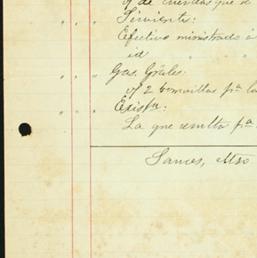 y de cuerdas que s
Sirvientes:
Efectivo ministrado á
id " " "
Gas. Grâles:
2 bombillas prª la
Existª:
La que resulta pª.